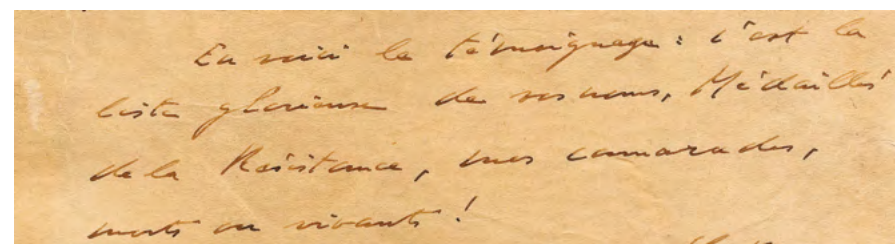 En voici le témoignage : c'est la
liste glorieuse de vos noms, Médaillés
de la Résistance, mes camarades,
morts ou vivants !